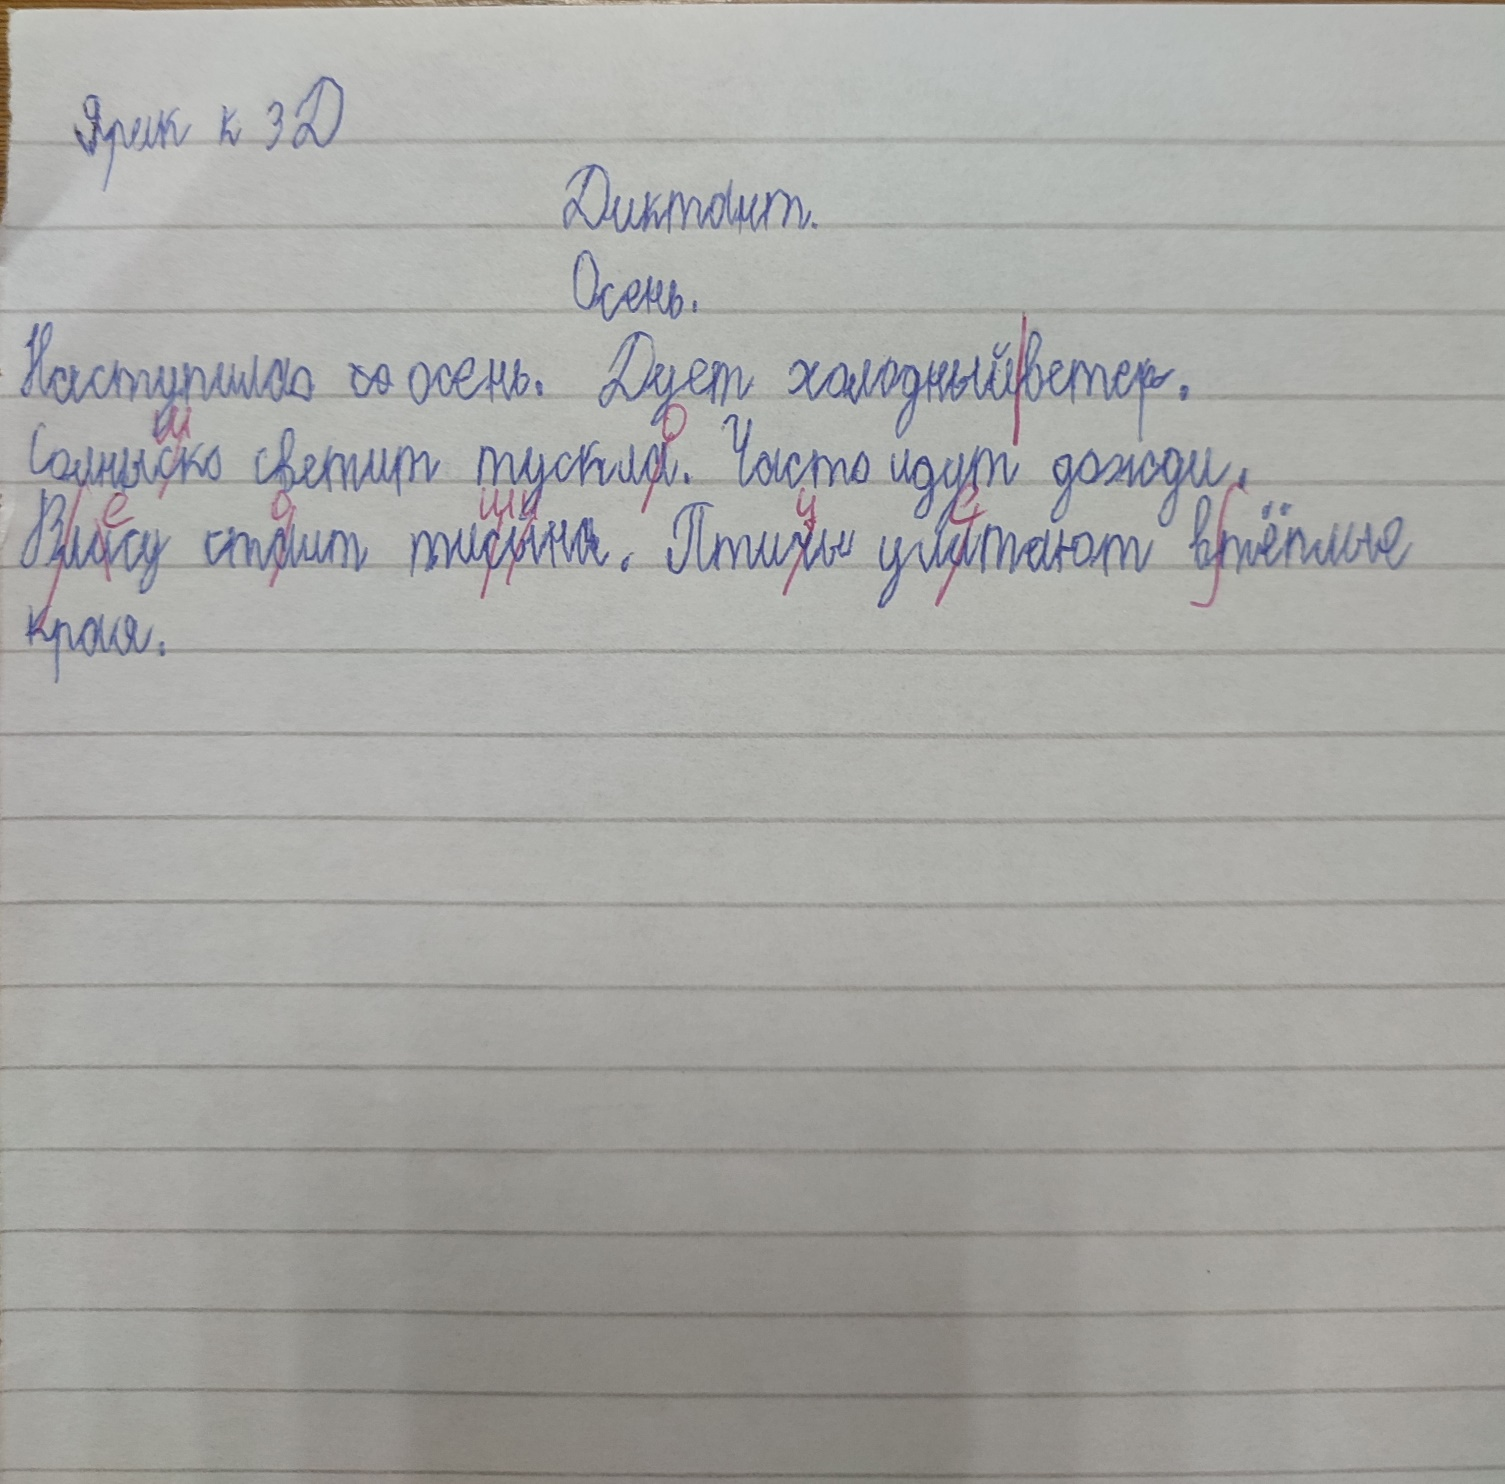 Ярик к 3Д
Диктант.
Осень.
Наступила осень. Дует холодный ветер.
Солныско светит тускла. Часто идут дожди.
Власу стаит тисына. Птихы улитают втёплые
края.